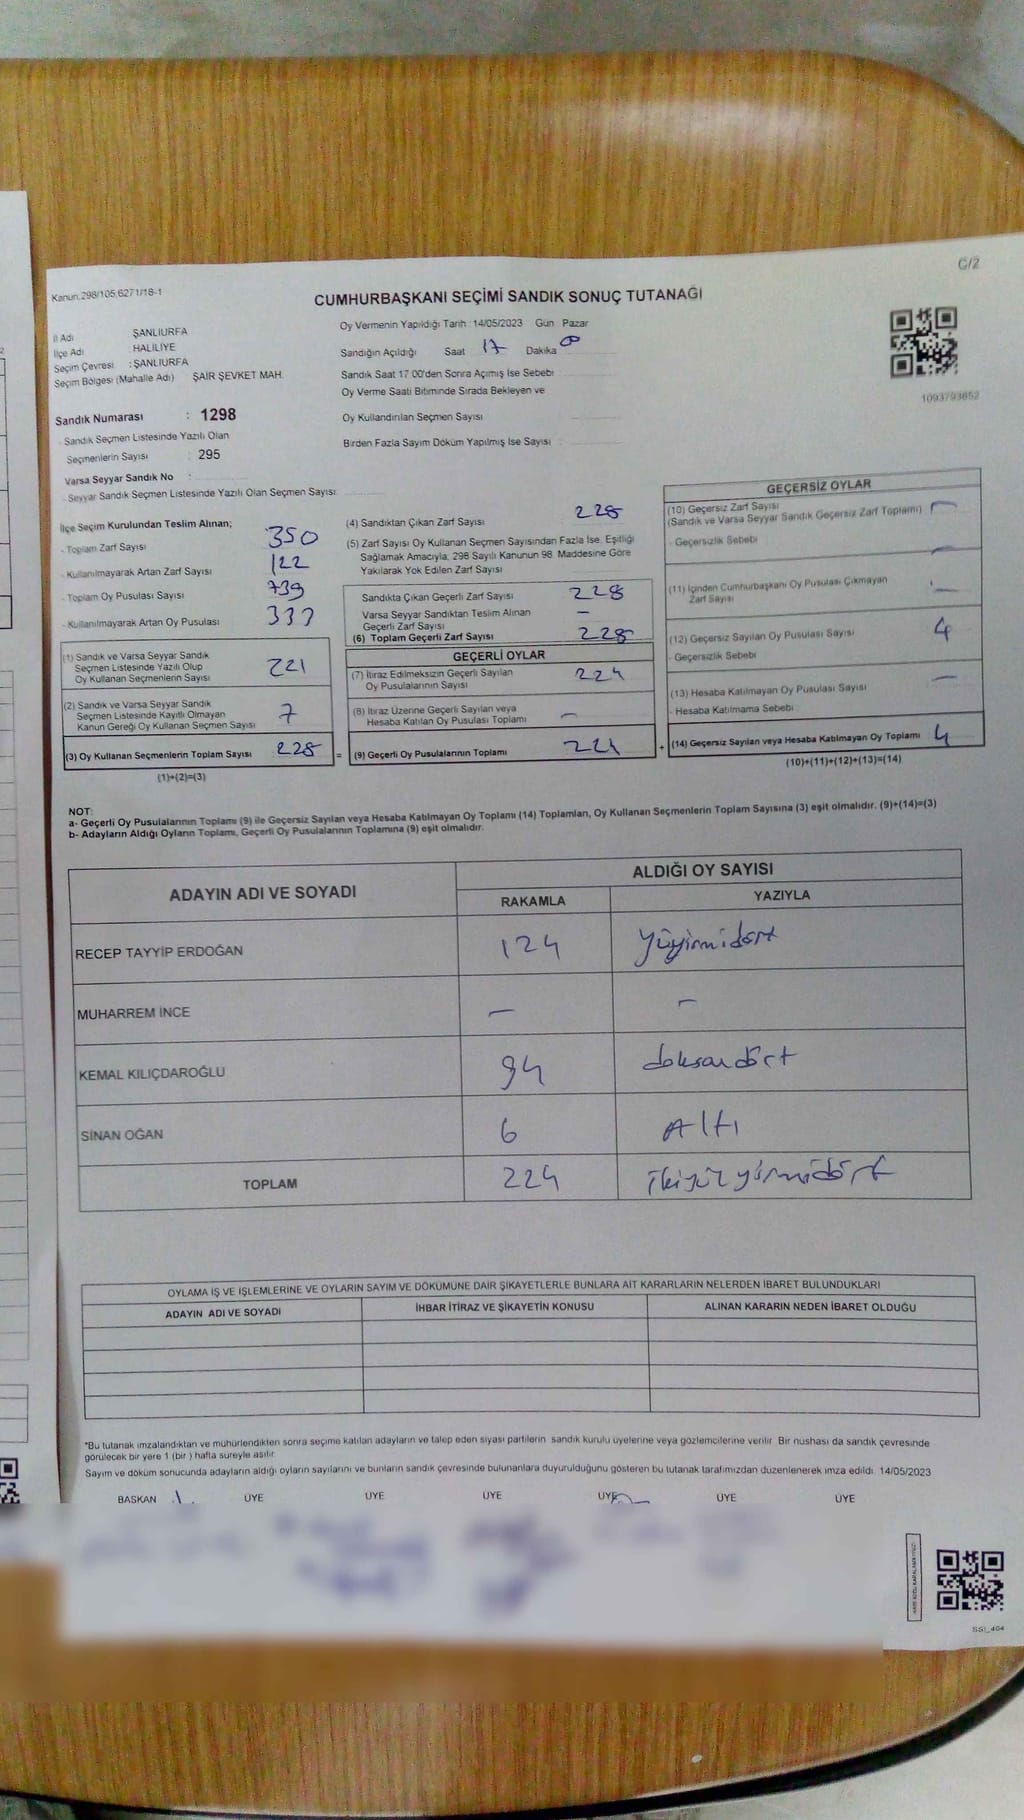 C/2
Kanun.298/105;6271/18-1
CUMHURBAŞKANI SEÇİMİ SANDIK SONUÇ TUTANAĞI
İl Adı ŞANLIURFA
İlçe Adı HALİLİYE
Seçim Çevresi : ŞANLIURFA
Seçim Bölgesi (Mahalle Adı) ŞAİR ŞEVKET MAH.
Oy Vermenin Yapıldığı Tarih : 14/05/2023 Gün Pazar
Sandığın Açıldığı Saat 17 Dakika 00
Sandık Saat 17:00'den Sonra Açımış İse Sebebi
Oy Verme Saati Bitiminde Sırada Bekleyen ve
Oy Kullandırılan Seçmen Sayısı
Birden Fazla Sayım Döküm Yapılmış İse Sayısı
1093793652
Sandık Numarası : 1298
- Sandık Seçmen Listesinde Yazılı Olan
Seçmenlerin Sayısı : 295
Varsa Seyyar Sandık No :
- Seyyar Sandık Seçmen Listesinde Yazılı Olan Seçmen Sayısı:
İlçe Seçim Kurulundan Teslim Alınan;
- Toplam Zarf Sayısı 350
- Kullanılmayarak Artan Zarf Sayısı 122
- Toplam Oy Pusulası Sayısı 739
- Kullanılmayarak Artan Oy Pusulası
(1) Sandık ve Varsa Seyyar Sandık
Seçmen Listesinde Yazılı Olup
Oy Kullanan Seçmenlerin Sayısı 221
(2) Sandık ve Varsa Seyyar Sandık
Seçmen Listesinde Kayıtlı Olmayan
Kanun Gereği Oy Kullanan Seçmen Sayısı 7
(3) Oy Kullanan Seçmenlerin Toplam Sayısı 228 =
(1)+(2)=(3)
(4) Sandıktan Çıkan Zarf Sayısı 228
(5) Zarf Sayısı Oy Kullanan Seçmen Sayısından Fazla İse, Eşitliği
Sağlamak Amacıyla; 298 Sayılı Kanunun 98. Maddesine Göre
Yakılarak Yok Edilen Zarf Sayısı
Sandıkta Çıkan Geçerli Zarf Sayısı 228
Varsa Seyyar Sandıktan Teslim Alınan
Geçerli Zarf Sayısı –
(6) Toplam Geçerli Zarf Sayısı 228
GEÇERLİ OYLAR
(7) İtiraz Edilmeksizin Geçerli Sayılan
Oy Pusulalarının Sayısı 224
(8) İtiraz Üzerine Geçerli Sayılan veya
Hesaba Katılan Oy Pusulası Toplamı –
(9) Geçerli Oy Pusulalarının Toplamı 224 +
GEÇERSİZ OYLAR
(10) Geçersiz Zarf Sayısı –
(Sandık ve Varsa Seyyar Sandık Geçersiz Zarf Toplamı)
- Geçersizlik Sebebi –
(11) İçinden Cumhurbaşkanı Oy Pusulası Çıkmayan
Zarf Sayısı –
(12) Geçersiz Sayılan Oy Pusulası Sayısı 4
- Geçersizlik Sebebi
(13) Hesaba Katılmayan Oy Pusulası Sayısı –
- Hesaba Katılmama Sebebi
(14) Geçersiz Sayılan veya Hesaba Katılmayan Oy Toplamı 4
(10)+(11)+(12)+(13)=(14)
NOT:
a- Geçerli Oy Pusulalarının Toplamı (9) ile Geçersiz Sayılan veya Hesaba Katılmayan Oy Toplamı (14) Toplamları, Oy Kullanan Seçmenlerin Toplam Sayısına (3) eşit olmalıdır. (9)+(14)=(3)
b- Adayların Aldığı Oyların Toplamı, Geçerli Oy Pusulalarının Toplamına (9) eşit olmalıdır.
ADAYIN ADI VE SOYADI ALDIĞI OY SAYISI
RAKAMLA YAZIYLA
RECEP TAYYİP ERDOĞAN 124
MUHARREM İNCE – –
KEMAL KILIÇDAROĞLU 94 doksandört
SİNAN OĞAN 6 Altı
TOPLAM 224 ikiyüzyirmidört
OYLAMA İŞ VE İŞLEMLERİNE VE OYLARIN SAYIM VE DÖKÜMÜNE DAİR ŞİKAYETLERLE BUNLARA AİT KARARLARIN NELERDEN İBARET BULUNDUKLARI
ADAYIN ADI VE SOYADI İHBAR İTİRAZ VE ŞİKAYETİN KONUSU ALINAN KARARIN NEDEN İBARET OLDUĞU
*Bu tutanak imzalandıktan ve mühürlendikten sonra seçime katılan adayların ve talep eden siyasi partilerin sandık kurulu üyelerine veya gözlemcilerine verilir. Bir nushası da sandık çevresinde
görülecek bir yere 1 (bir ) hafta süreyle asılır.
Sayım ve döküm sonucunda adayların aldığı oyların sayılarını ve bunların sandık çevresinde bulunanlara duyurulduğunu gösteren bu tutanak tarafımızdan düzenlenerek imza edildi. 14/05/2023
BAŞKAN ÜYE ÜYE ÜYE ÜYE ÜYE ÜYE
SSI_404